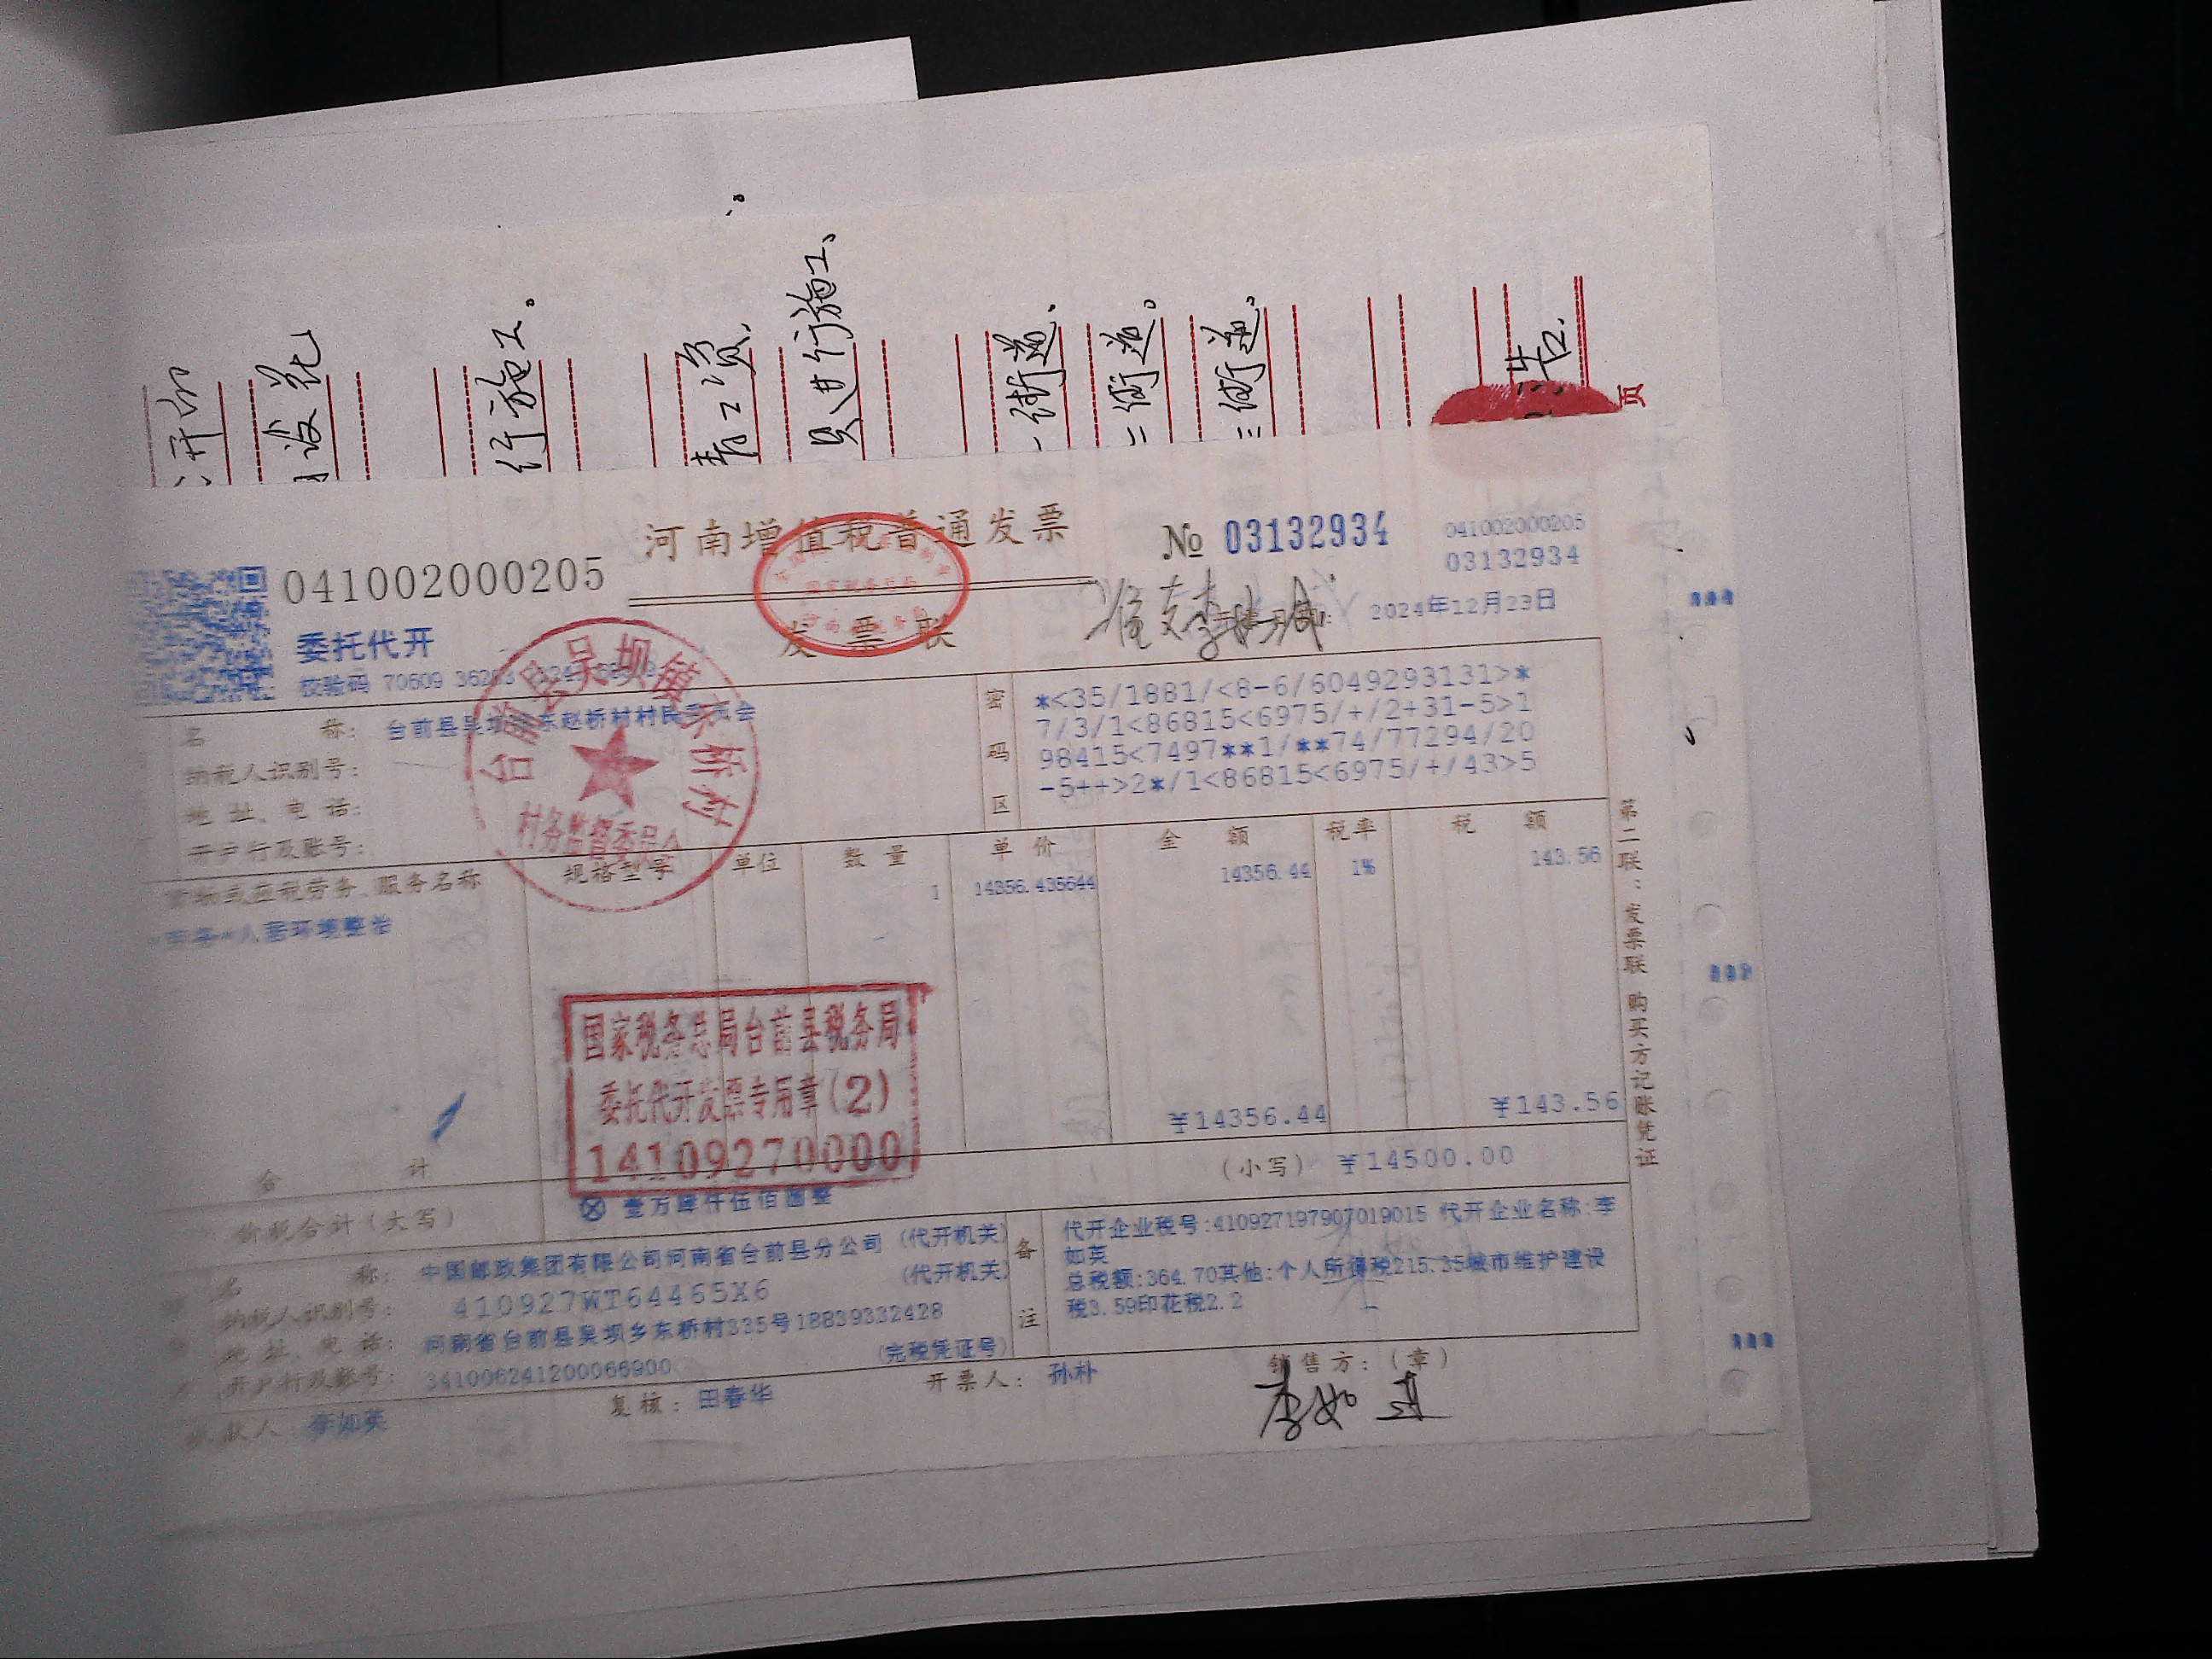 行施工。
青工资、
员进行施工、
一街道、
二街道。
三街道。
告
页
河南增值税普通发票
发票联
041002000205
№ 03132934
041002000205
03132934
委托代开
准支
2024年12月23日
校验码 70609
名 称: 台前县吴坝 东赵桥村村民委员会
纳税人识别号:
地址、电话:
开户行及账号:
密码区
*<35/1881/<8-6/6049293131>*
7/3/1<86815<6975/+/2+31-5>1
98415<7497**1/**74/77294/20
-5++>2*/1<86815<6975/+/43>5
村务监督委员会
服务名称 规格型号 单位 数量 单价 金额 税率 税额
人居环境整治 1 14356.435644 14356.44 1% 143.56
国家税务总局台前县税务局
委托代开发票专用章(2)
14109270000
合计 ¥14356.44 ¥143.56
价税合计(大写) ⊗ 壹万肆仟伍佰圆整 (小写) ¥14500.00
名 称: 中国邮政集团有限公司河南省台前县分公司 (代开机关)
纳税人识别号: 410927WT64465X6 (代开机关)
地址、电话: 河南省台前县吴坝乡东桥村335号18839332428
开户行及账号: 341006241200066900 (完税凭证号)
备注
代开企业税号:410927197907019015 代开企业名称:李
如英
总税额:364.70其他:个人所得税215.35城市维护建设
税3.59印花税2.2
收款人 李如英 复核: 田春华 开票人: 孙朴 销售方:(章)
李如英
第二联:发票联 购买方记账凭证